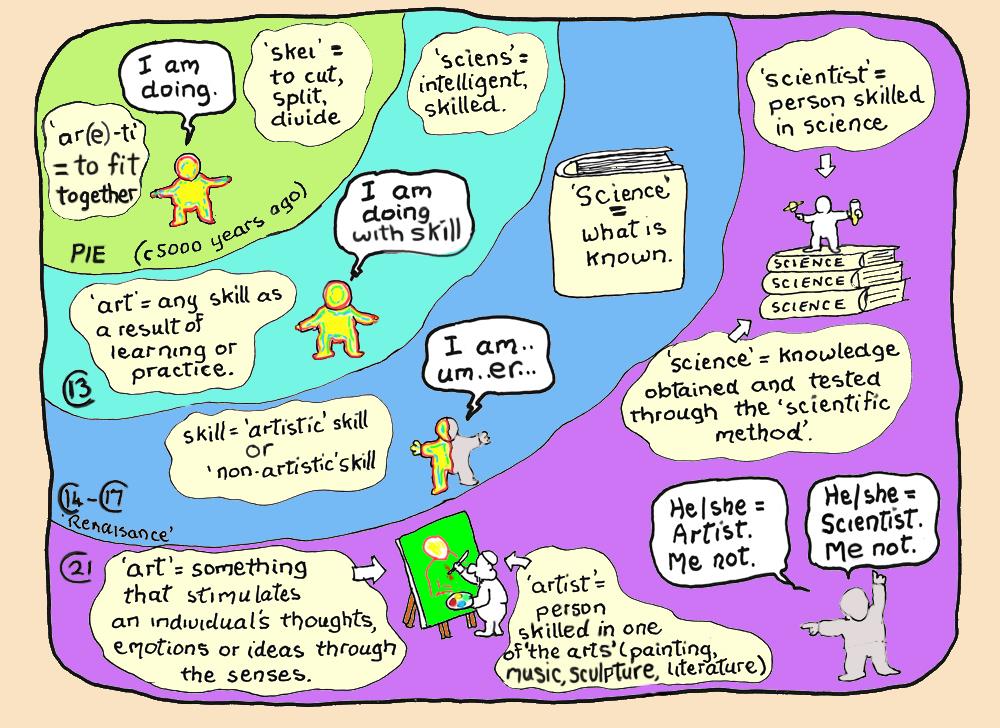 I am
doing.
'skei' =
to cut,
split,
divide
'ar(e)-ti'
= to fit
together
PIE (c5000 years ago)
'sciens'=
intelligent,
skilled.
I am
doing
with skill
'art'= any skill as
a result of
learning or
practice.
13
'Science'
=
what is
known.
I am..
um..er...
skill = 'artistic' skill
or
'non-artistic' skill
14-17
'Renaisance'
'scientist'=
person skilled
in science
SCIENCE
SCIENCE
SCIENCE
'science' = knowledge
obtained and tested
through the 'scientific
method'.
He/she =
Artist.
Me not.
He/she =
Scientist.
Me not.
21
'art'= something
that stimulates
an individual's thoughts,
emotions or ideas through
the senses.
'artist'=
person
skilled in one
of 'the arts' (painting,
music, sculpture, literature)